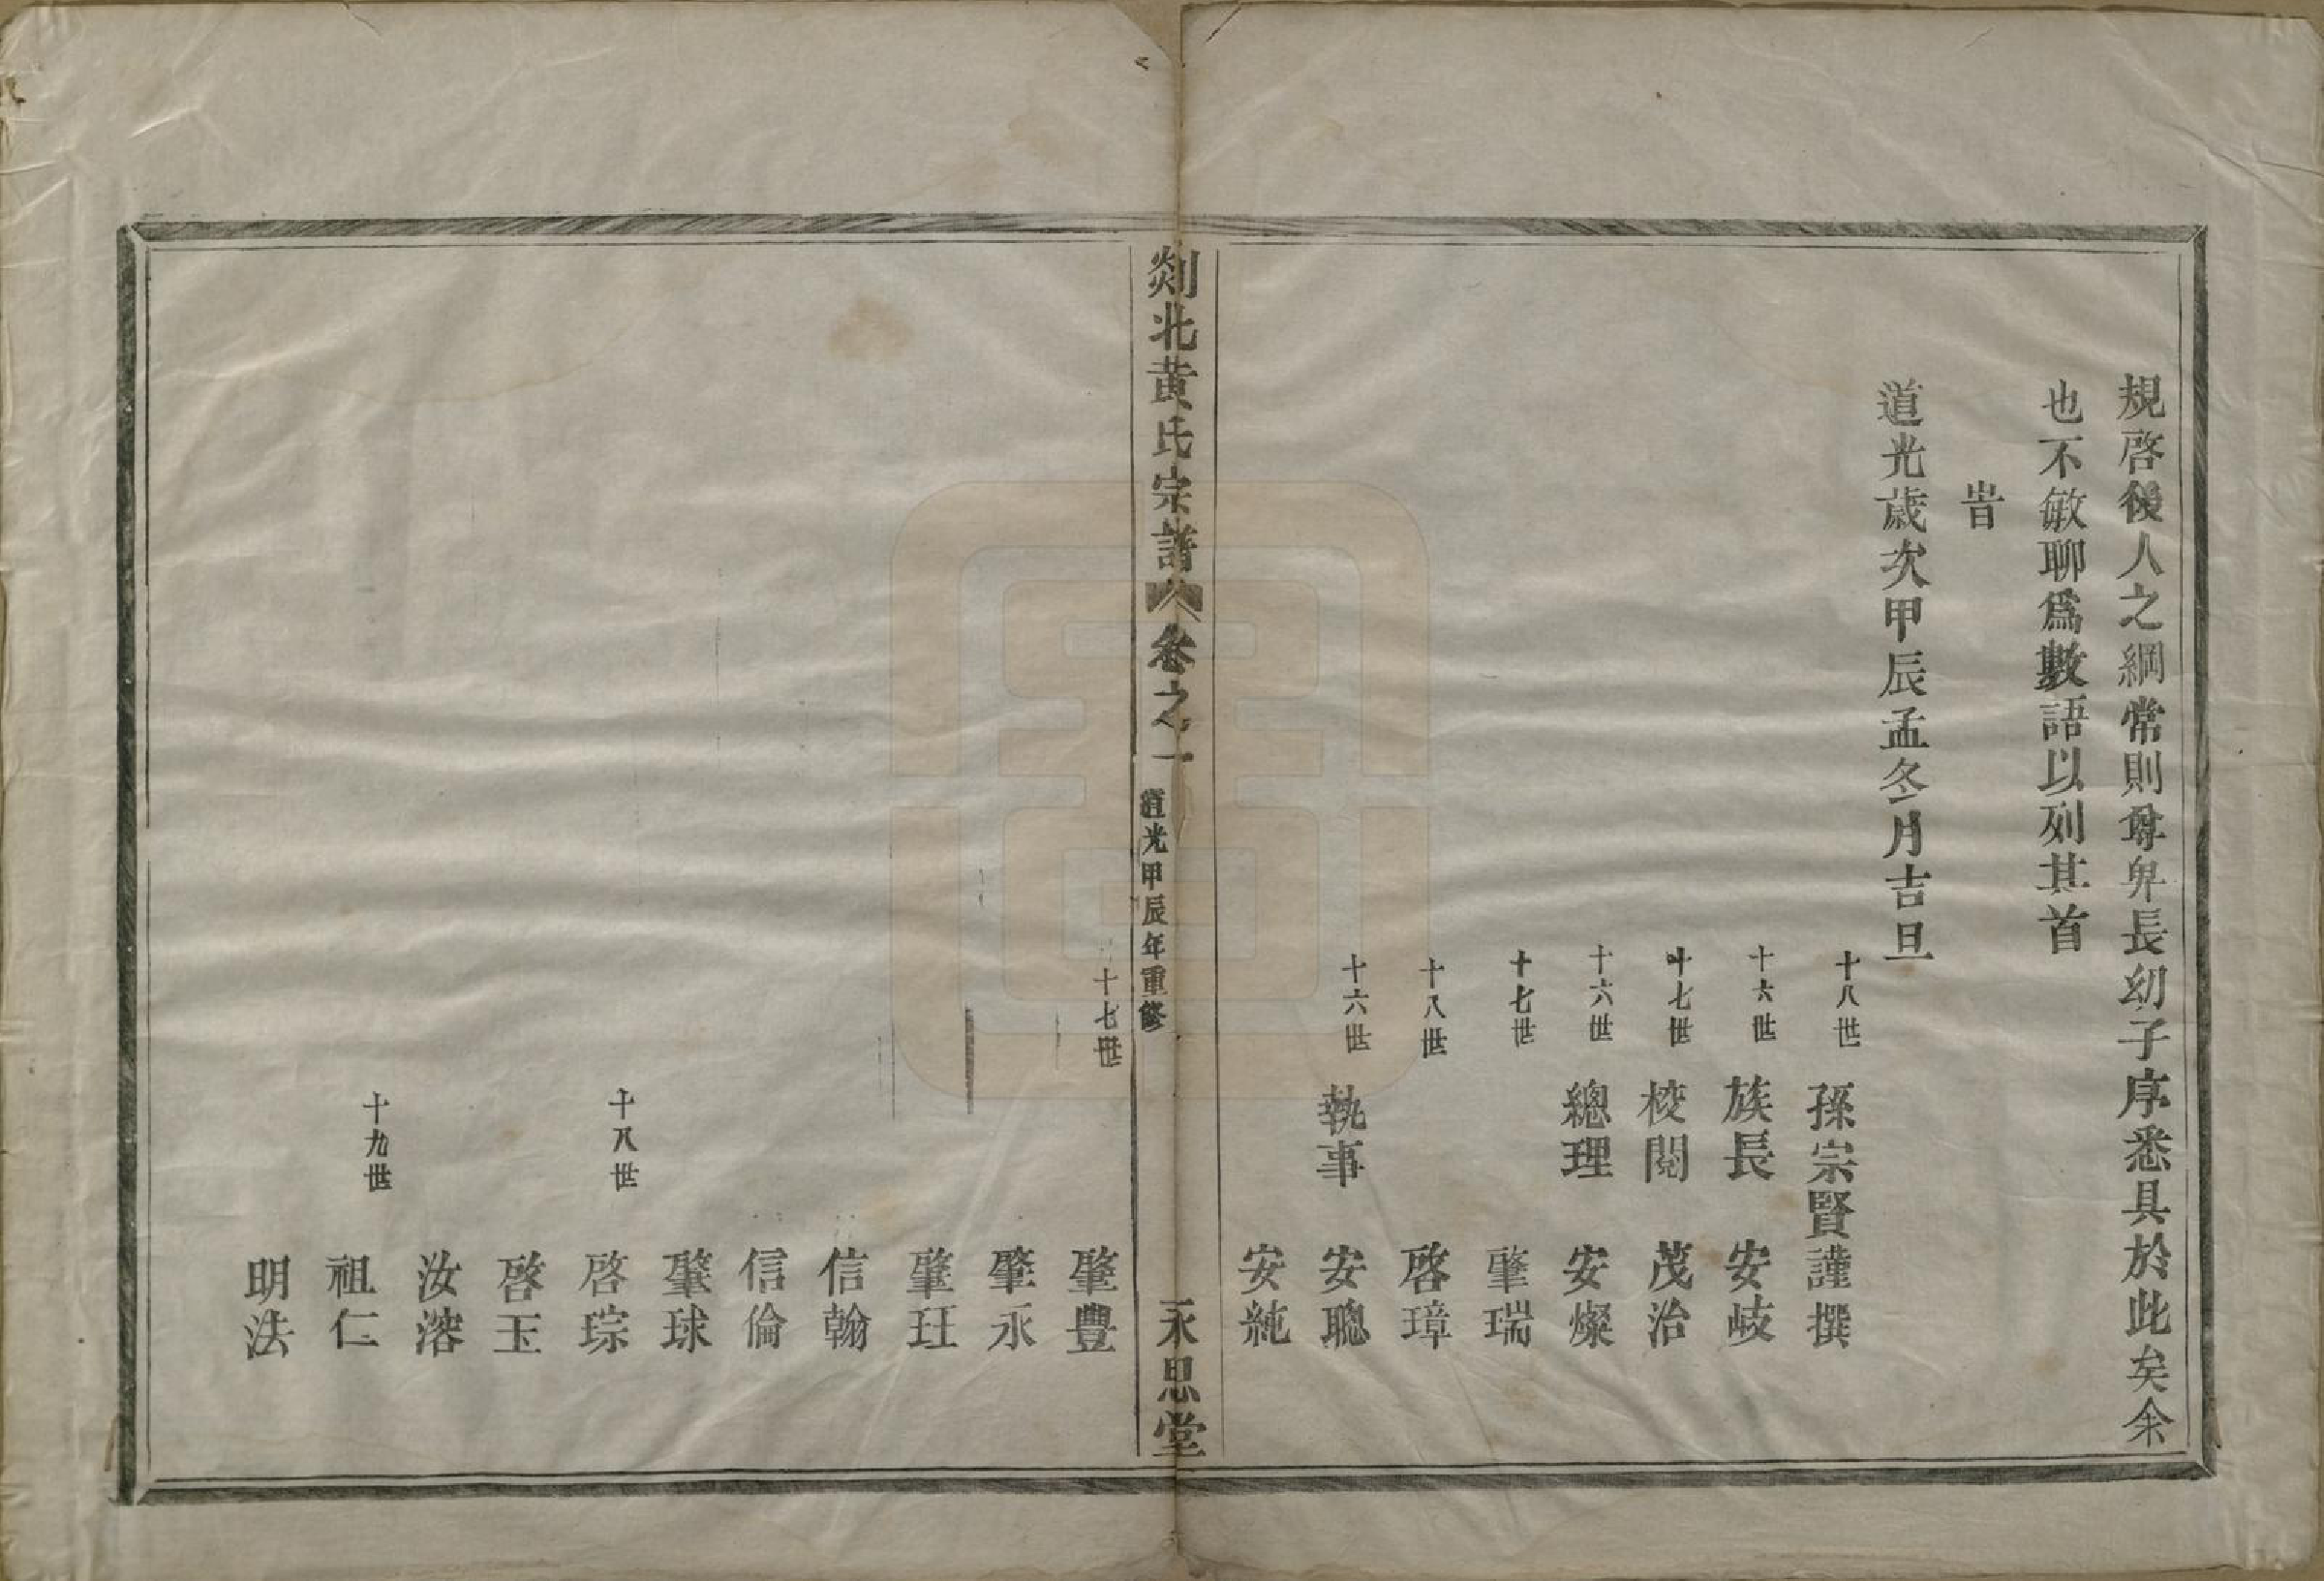 規啓後人之綱常則尊卑長幼子序悉具於此矣余
也不敏聊爲數語以列其首
旹
道光歲次甲辰孟冬月吉旦
十八世 孫宗賢謹撰
十六世 族長 安岐
十七世 校閱 茂治
十六世 總理 安燦
十七世 肇瑞
十八世 啓璋
十六世 執事 安聰
安純
剡北黃氏宗譜 卷之一 道光甲辰年重修 永思堂
十七世 肇豐
肇永
肇玨
信翰
信倫
肇球
十八世 啓琮
啓玉
汝濬
十九世 祖仁
明法